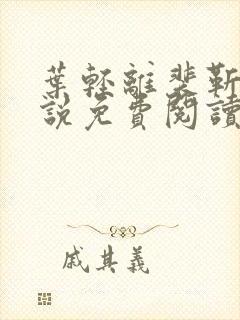 葉輕離裴靳
說免費閱讀
戚其義